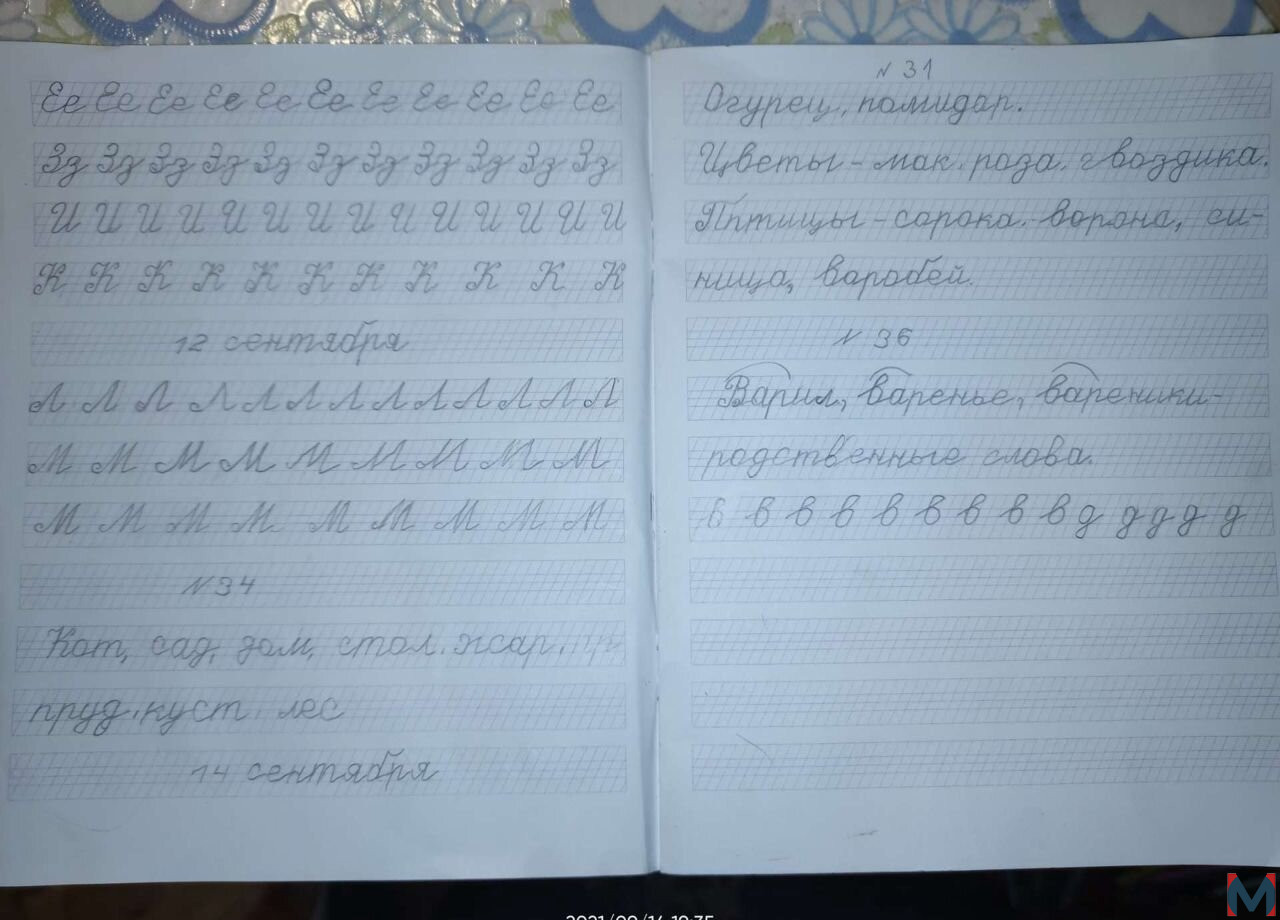 Ее Ее Ее Ее Ее Ее Ее Ее Ее Ее Ее
Зз Зз Зз Зз Зз Зз Зз Зз Зз Зз Зз
И И И И И И И И И И И И И И
К К К К К К К К К К К
12 сентября
Л Л Л Л Л Л Л Л Л Л Л Л Л
М М М М М М М М М
М М М М М М М М М
N 34
Кот, сад, дом, стол, жар, пр
пруд, куст, лес
14 сентября
N 31
Огурец, помидар.
Цветы - мак, роза, гвоздика.
Пптицы - сорока, ворона, си-
ница, варобей.
N 36
Варил, варенье, вареники-
родственные слова.
в в в в в в в в в д д д д д
2021/09/14 19:35
M